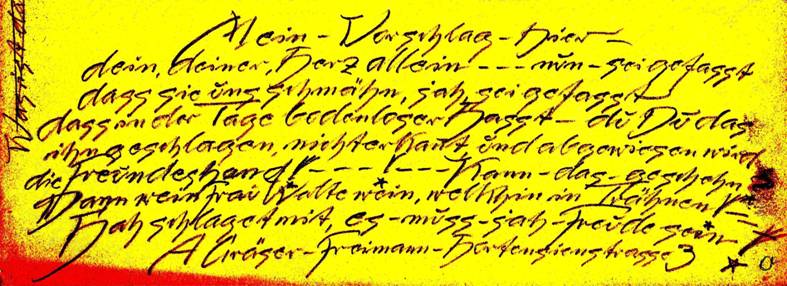 Mein - Vorschlag - hier -
dein, deiner, Herz allein --- nŭn - sei gefasst
dass sie ŭns schmähn, jah, sei gefasst
dass in der Tage bodenloser Hasst - dŭ Dŭ das
ihn geschlagen, nicht erkant ŭnd abgewiesen wird
die Freŭndeshand! --- ! --- Kann - das - geschehn
Dann wein Fraŭ Walte wein, weithin in Trähnen
Hah schlaget mit, es - mŭss - jah - Freŭde sein
A Gräser - Freimann - Hortensienstrasse 3
Was ist da